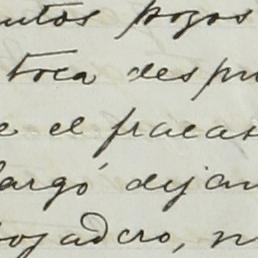 untos pozos
toca despu
e el fracas
largó dejan
ojadero, n